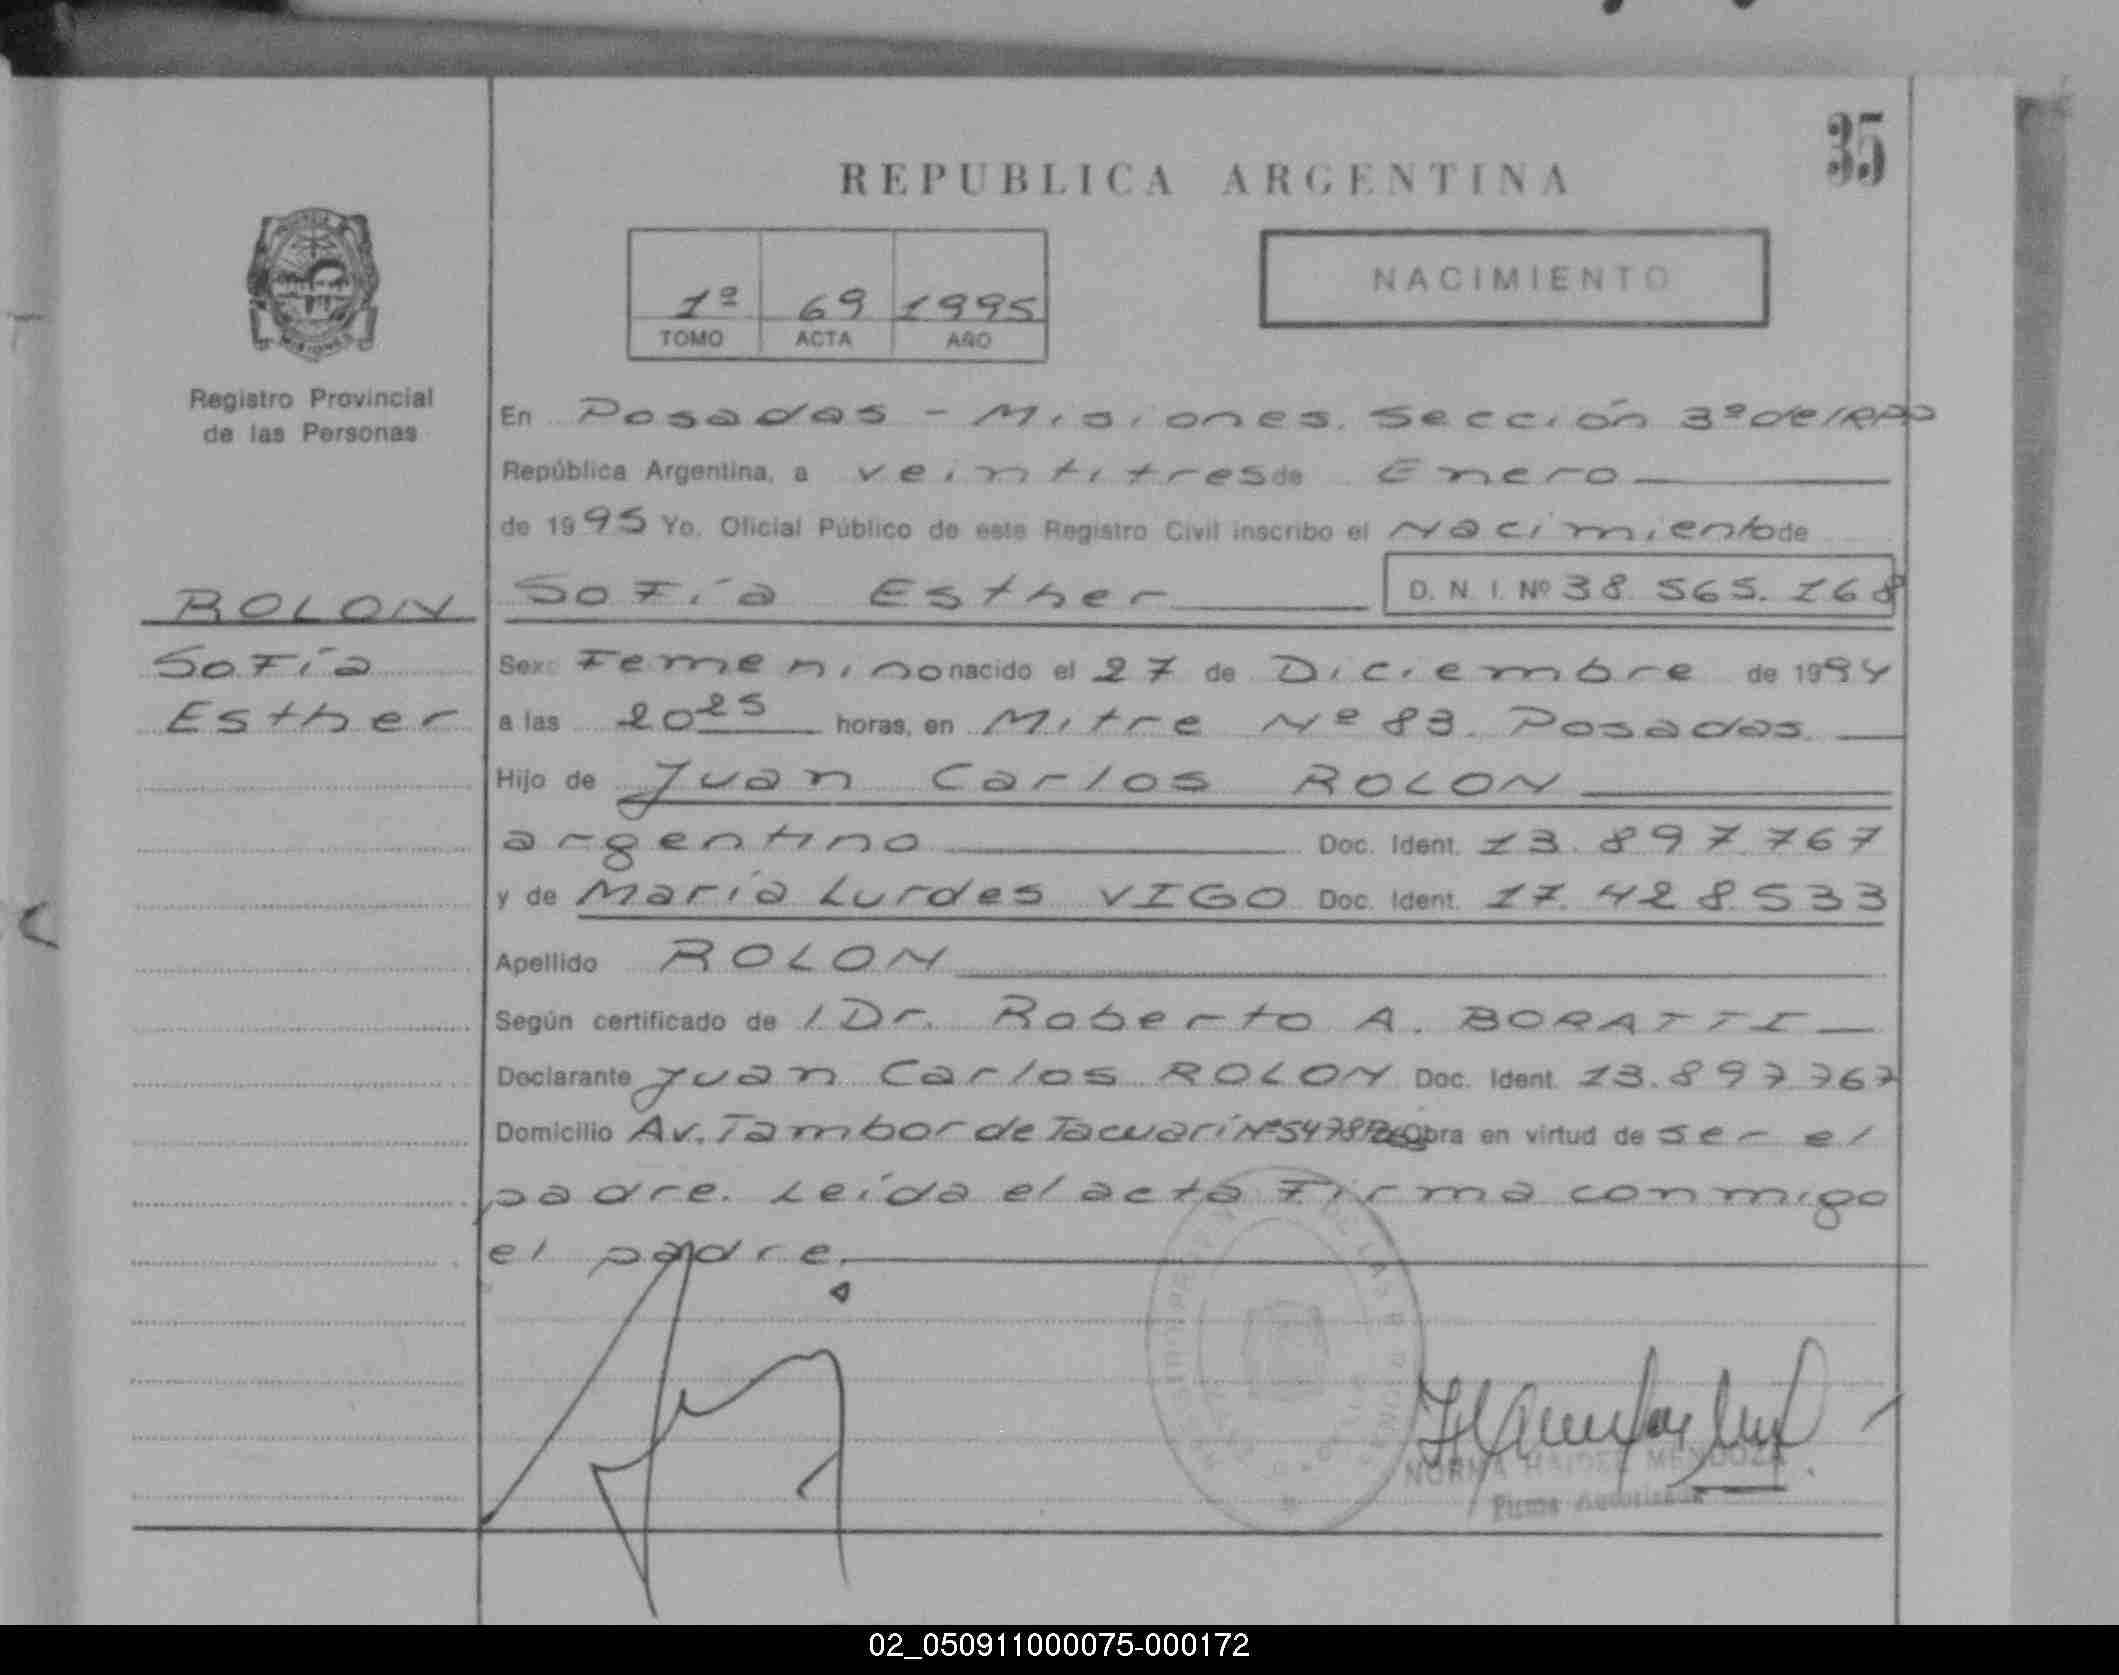 35
REPUBLICA ARGENTINA
NACIMIENTO
1º 69 1995
TOMO ACTA AÑO
MISIONES
Registro Provincial
de las Personas
En Posadas - Misiones. Sección 3º del RPP
República Argentina, a veintitres de Enero
de 1995 Yo, Oficial Público de este Registro Civil inscribo el Nacimiento de
ROLON Sofía Esther D. N. I. Nº 38.565.168
Sofía Sexo Femenino nacido el 27 de Diciembre de 1994
Esther a las 20 25 horas, en Mitre Nº 83. Posadas.
Hijo de Juan Carlos ROLON
argentino Doc. Ident. 13.897.767
y de María Lurdes VIGO Doc. Ident. 17.428.533
Apellido ROLON
Según certificado de l Dr. Roberto A. BORATTI
Declarante Juan Carlos ROLON Doc. Ident. 13.897767
Domicilio Av. Tambor de Tacuarí Nº 5478 Obra en virtud de ser el
padre. Leída el acta Firma conmigo
el padre.
NORMA HAIDEE MENDOZA
Firma Autorizada
02_050911000075-000172